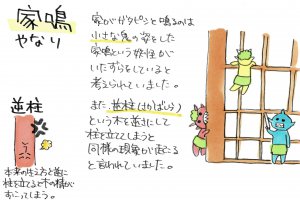 家鳴
やなり
家がガタピシと鳴るのは
小さな鬼の姿をした
家鳴という妖怪が
いたずらをしていると
考えられていました。
また、逆柱(さかばしら)
という木を逆さにして
柱を立てしまうと
同様の現象が起こる
と言われていました。
逆柱
本来の生え方と逆に
柱を立てると木の精が
おこってしまう。